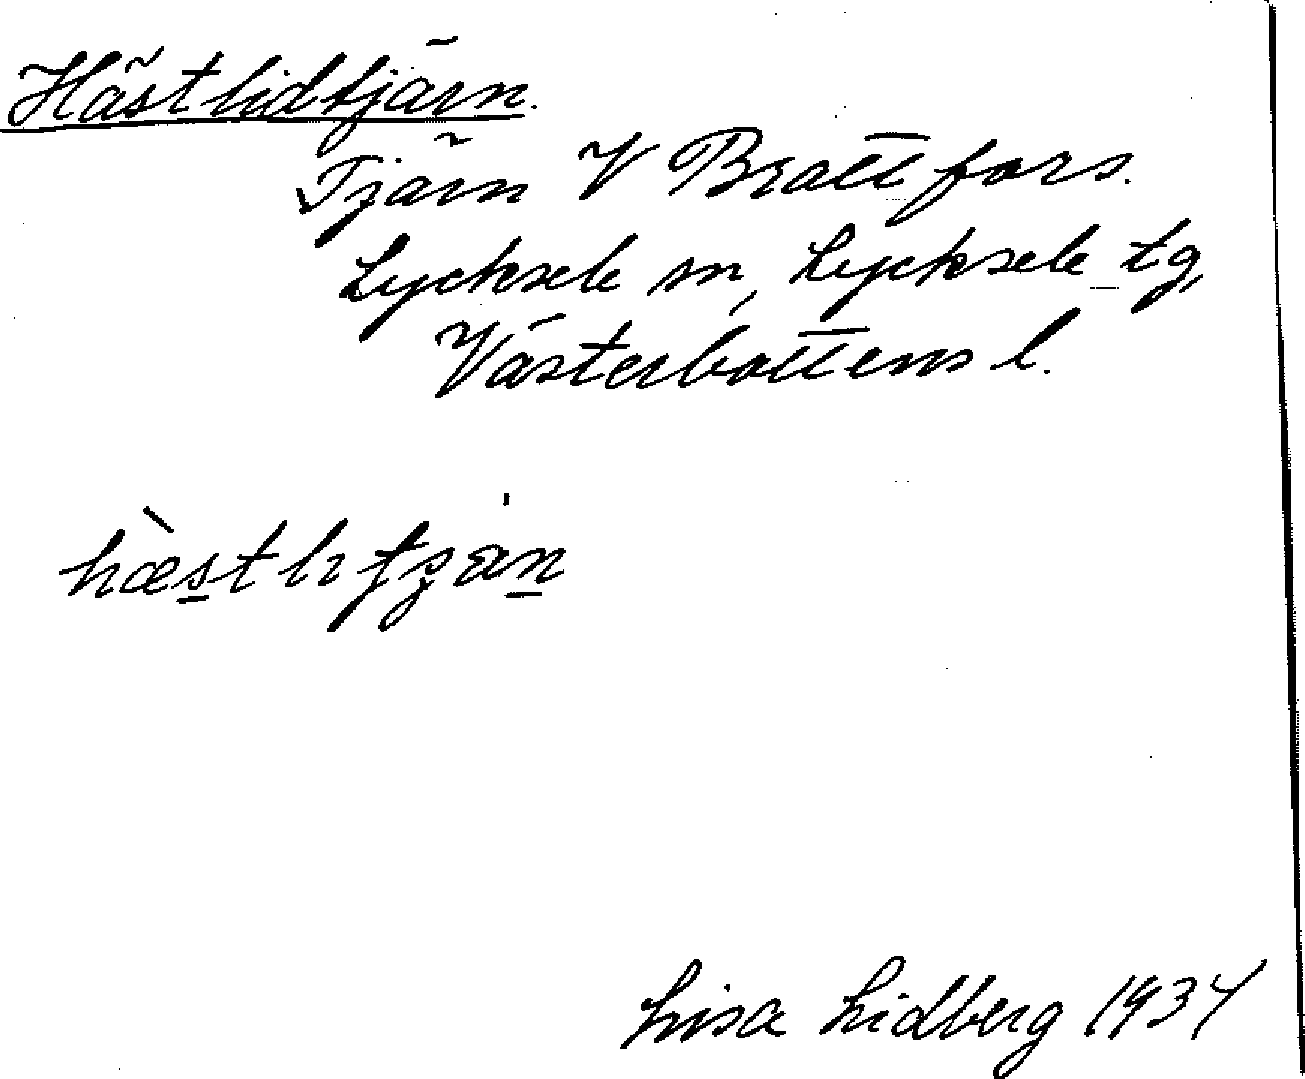 Hästlidtjärn.
Tjärn V Brattfors.
Lycksele sn, Lycksele tg,
Västerbottens l.
Lisa Lidberg 1934